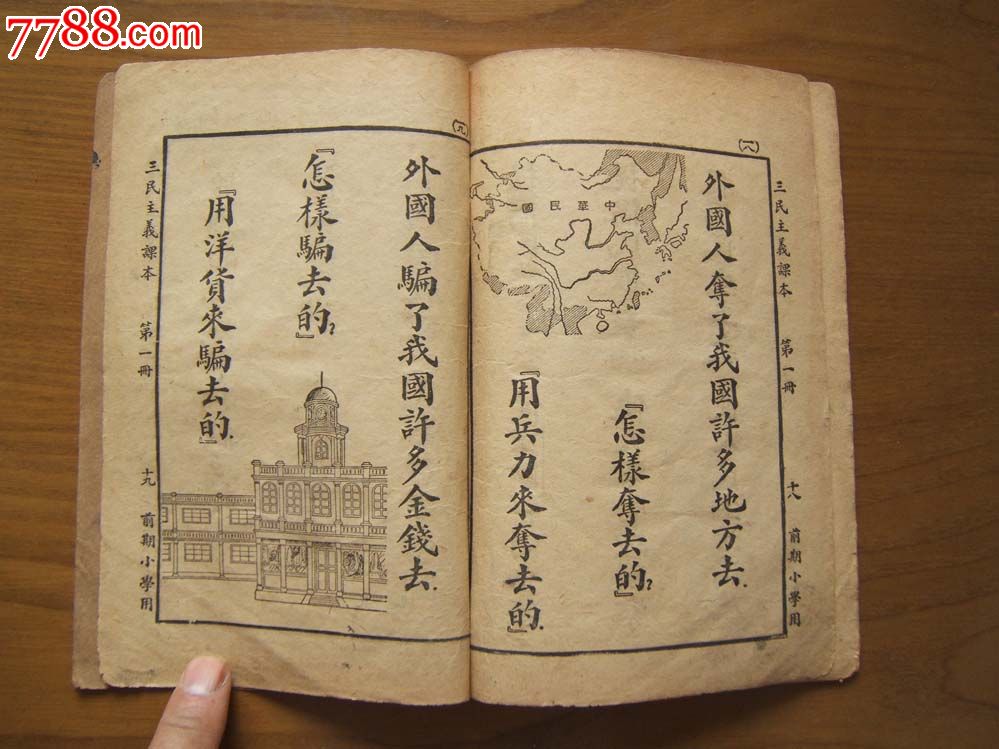 7788.com
(八)
三民主義課本 第一冊 十八 前期小學用
外國人奪了我國許多地方去.
『怎樣奪去的』?
『用兵力來奪去的』.
中華民國
(九)
外國人騙了我國許多金錢去.
『怎樣騙去的』?
『用洋貨來騙去的』.
三民主義課本 第一冊 十九 前期小學用